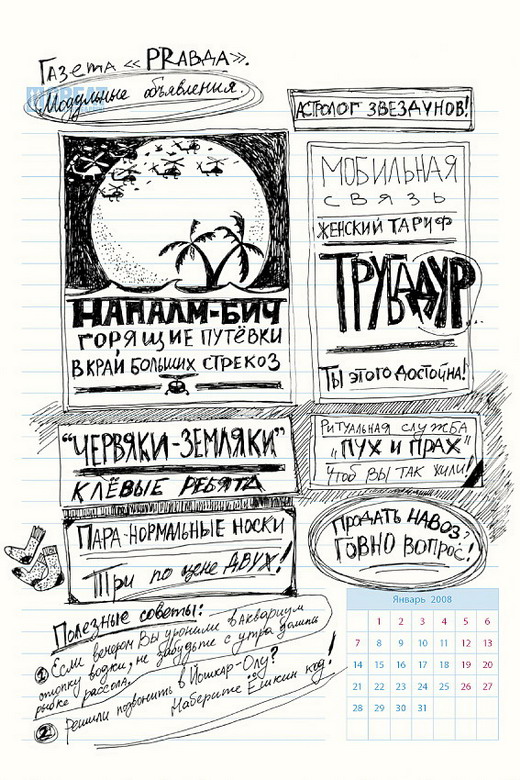 Газета «PRАВДА».
Модульные объявления.
АСТРОЛОГ ЗВЕЗДУНОВ!
НАПАЛМ-БИЧ
ГОРЯЩИЕ ПУТЁВКИ
В КРАЙ БОЛЬШИХ СТРЕКОЗ
МОБИЛЬНАЯ
СВЯЗЬ
ЖЕНСКИЙ ТАРИФ
ТРУБАДУР...
ТЫ ЭТОГО ДОСТОЙНА!
"ЧЕРВЯКИ-ЗЕМЛЯКИ"
КЛЁВЫЕ РЕБЯТА
РИТУАЛЬНАЯ СЛУЖБА
„ПУХ И ПРАХ"
ЧТОБ ВЫ ТАК ЖИЛИ!
ПАРА-НОРМАЛЬНЫЕ НОСКИ
Три по цене ДВУХ!
ПРОДАТЬ НАВОЗ?
ГОВНО ВОПРОС!
Полезные советы:
1 Если вечером Вы уронили в аквариум
стопку водки, не забудьте с утра долить
рыбке рассола.
2 Решили позвонить в Йошкар-Олу?
Наберите Ёшкин код!
Январь 2008
1 2 3 4 5 6
7 8 9 10 11 12 13
14 15 16 17 18 19 20
21 22 23 24 25 26 27
28 29 30 31